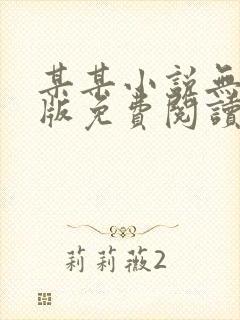 某某小說無
版免費閱讀
莉莉薇2